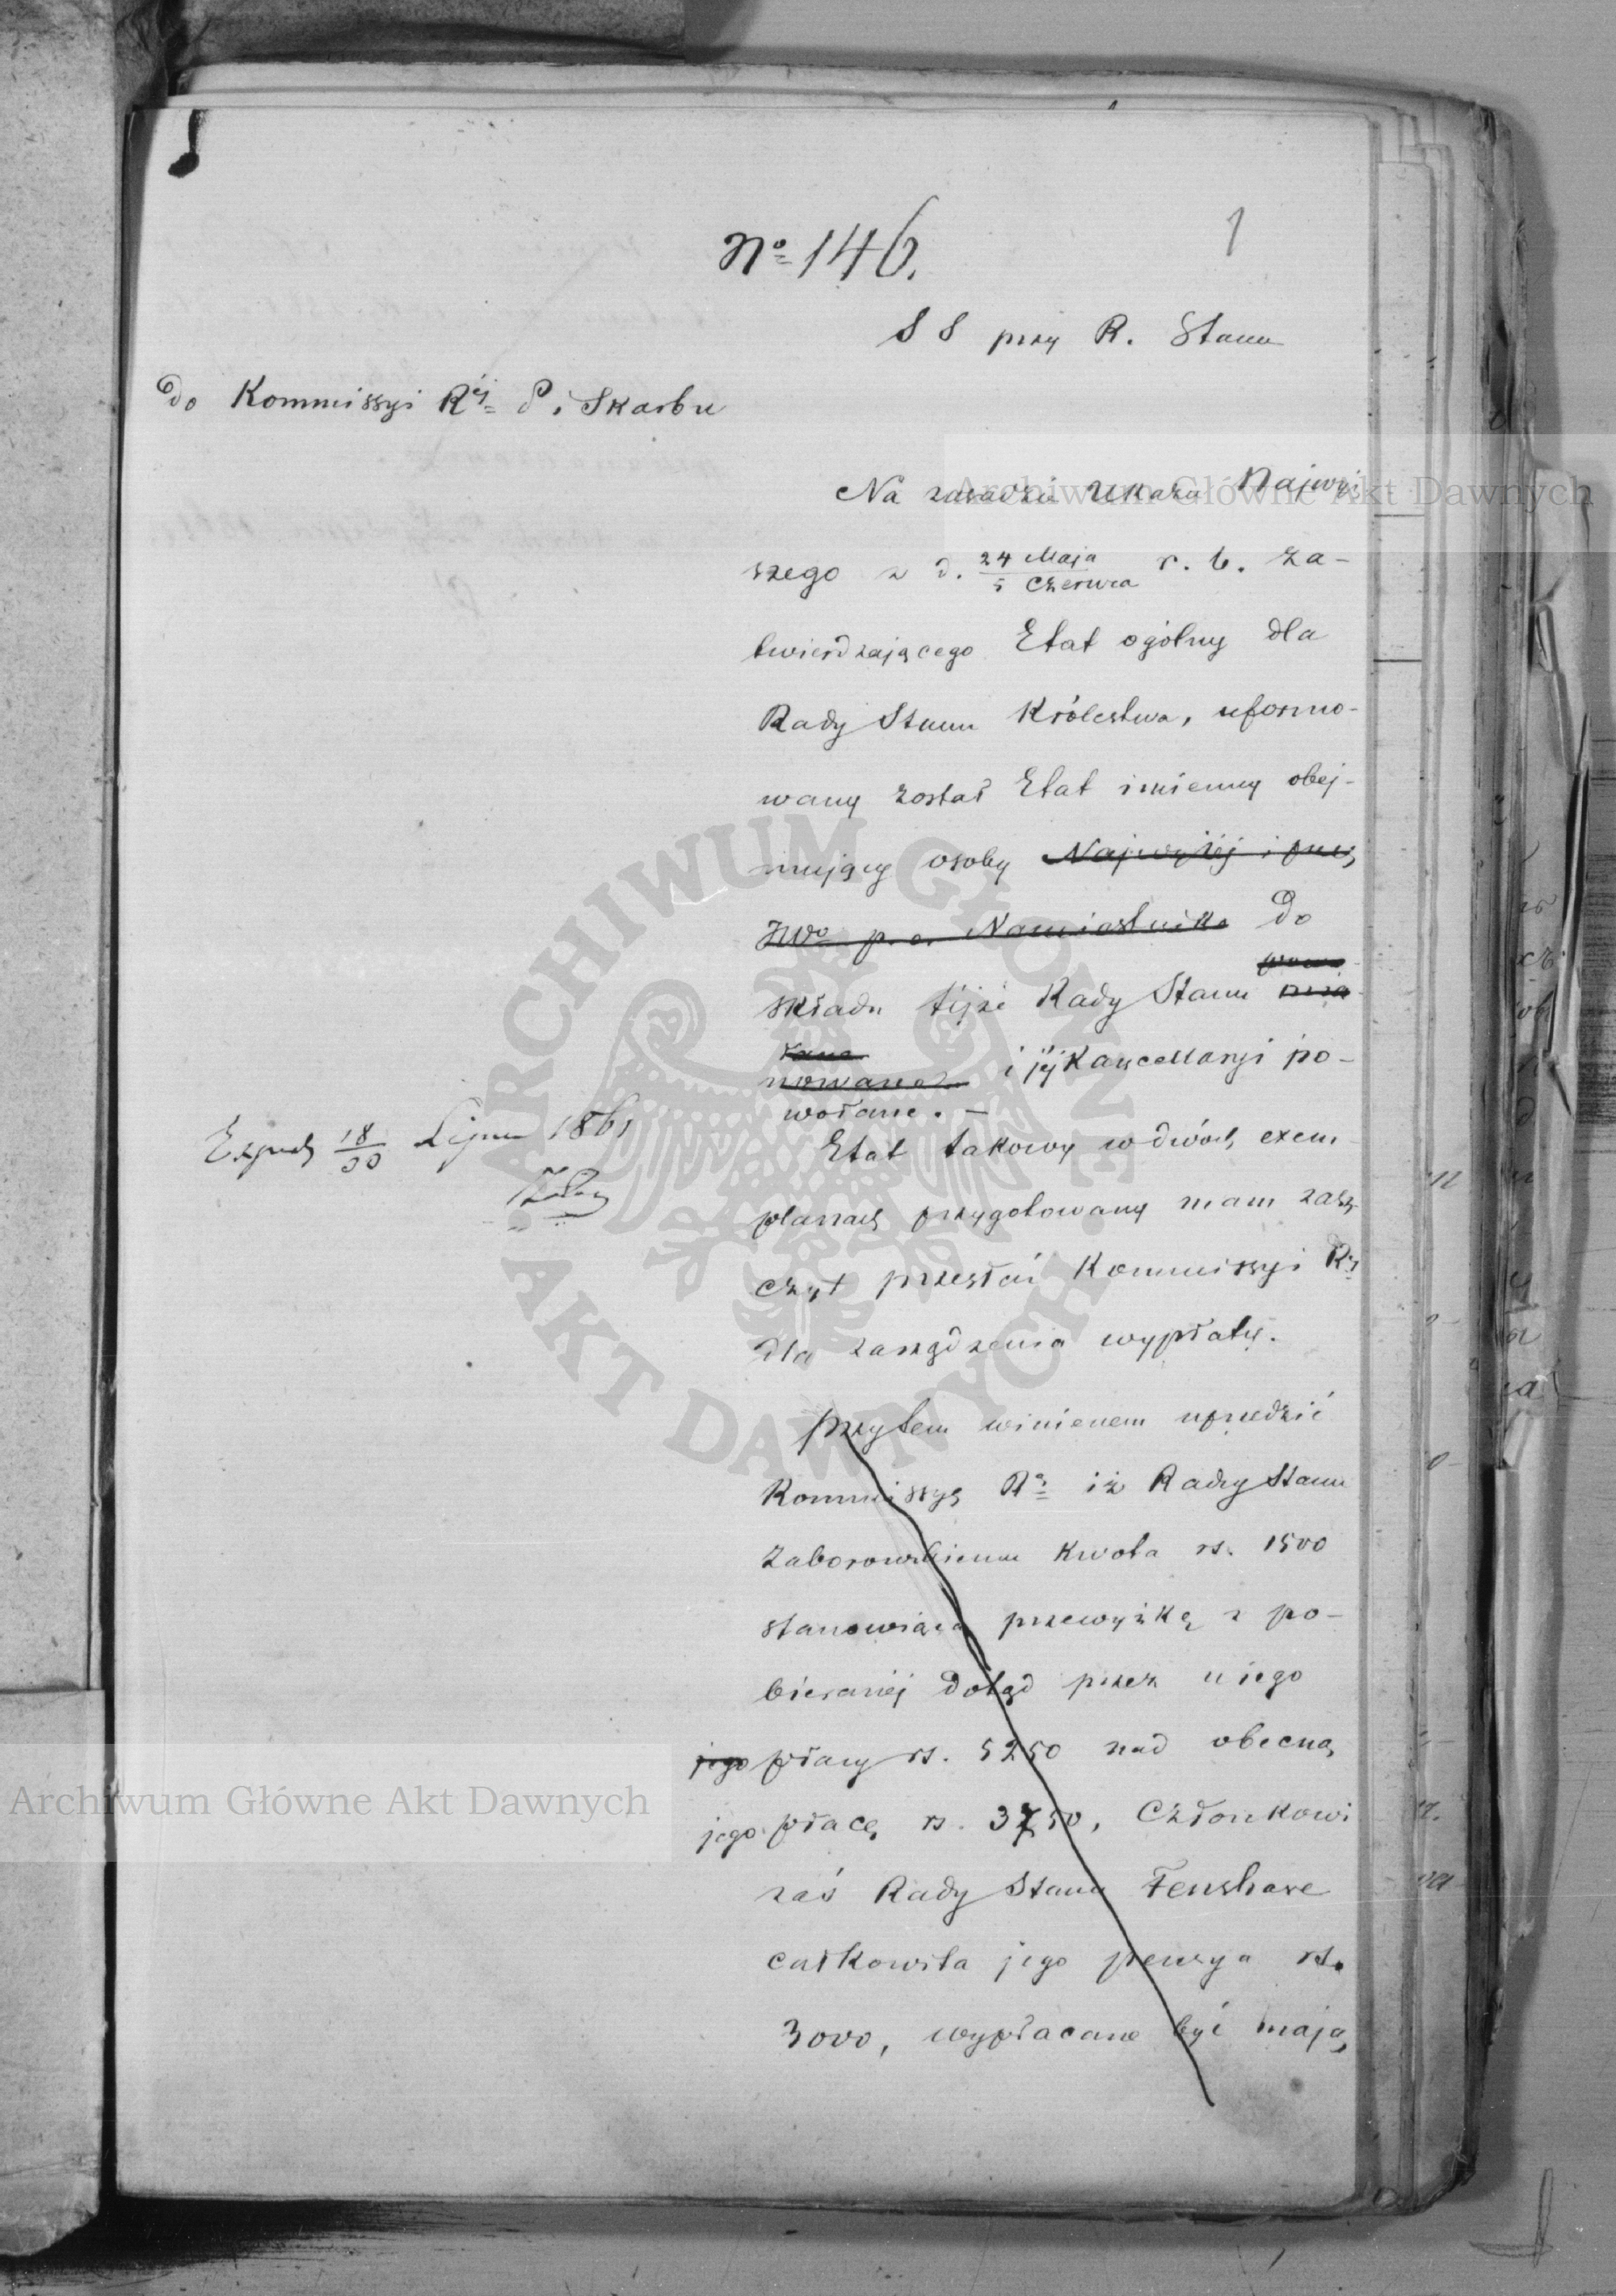 1
Nº 146.
S S przy R. Stanu
Do Kommissyi Réj P. i Skarbu
Na zasadzie Ukazu Najwyż
szego z d. 24 Maja / 5 Czerwca r. b. za-
twierdzającego Etat ogólny dla
Rady Stanu Królestwa, uformo-
wany został Etat imienny obej-
mujący osoby Najwyżéj i przez
JWo p. o. Namiestnika do
składu téjże Rady Stanu
i jéj Kancellaryi po-
wołane. –
Exped 18/30 Lipca 1861
Etat takowy w dwóch exem-
plarzach przygotowany mam zasz
czyt przesłać Kommissyi Réj
dla zarządzenia wypłaty.
Przytem winienem uprzedzić
Kommissyą Rą iż Radcy Stanu
Zaborowskiemu kwota rs. 1500
stanowiąca przewyżkę z po-
bieranéj dotąd przez niego
jego płacy rs. 5250 nad obecną
jego płacę rs. 3750, Członkowi
zaś Rady Stanu Fenshave
całkowita jego pensya rs.
3000, wypłacane być mają
Archiwum Główne Akt Dawnych
ARCHIWUM GŁÓWNE AKT DAWNYCH
Archiwum Główne Akt Dawnych